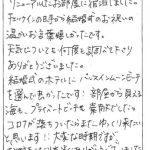 リニューアルしたお部屋に宿泊しました。
チェックインの日から結婚式のお祝いの
温かいお言葉嬉しかったです。
天気についても何度も調べて下さり
ありがとうございました。
結婚式のホテルにバンスインムーンビーチ
を選んで良かったです! 部屋から見える
海も、プライベートビーチも素敵でした。
コロナが落ちついたらまたゆっくり来たい
と思います!! 大変な時期ですが、